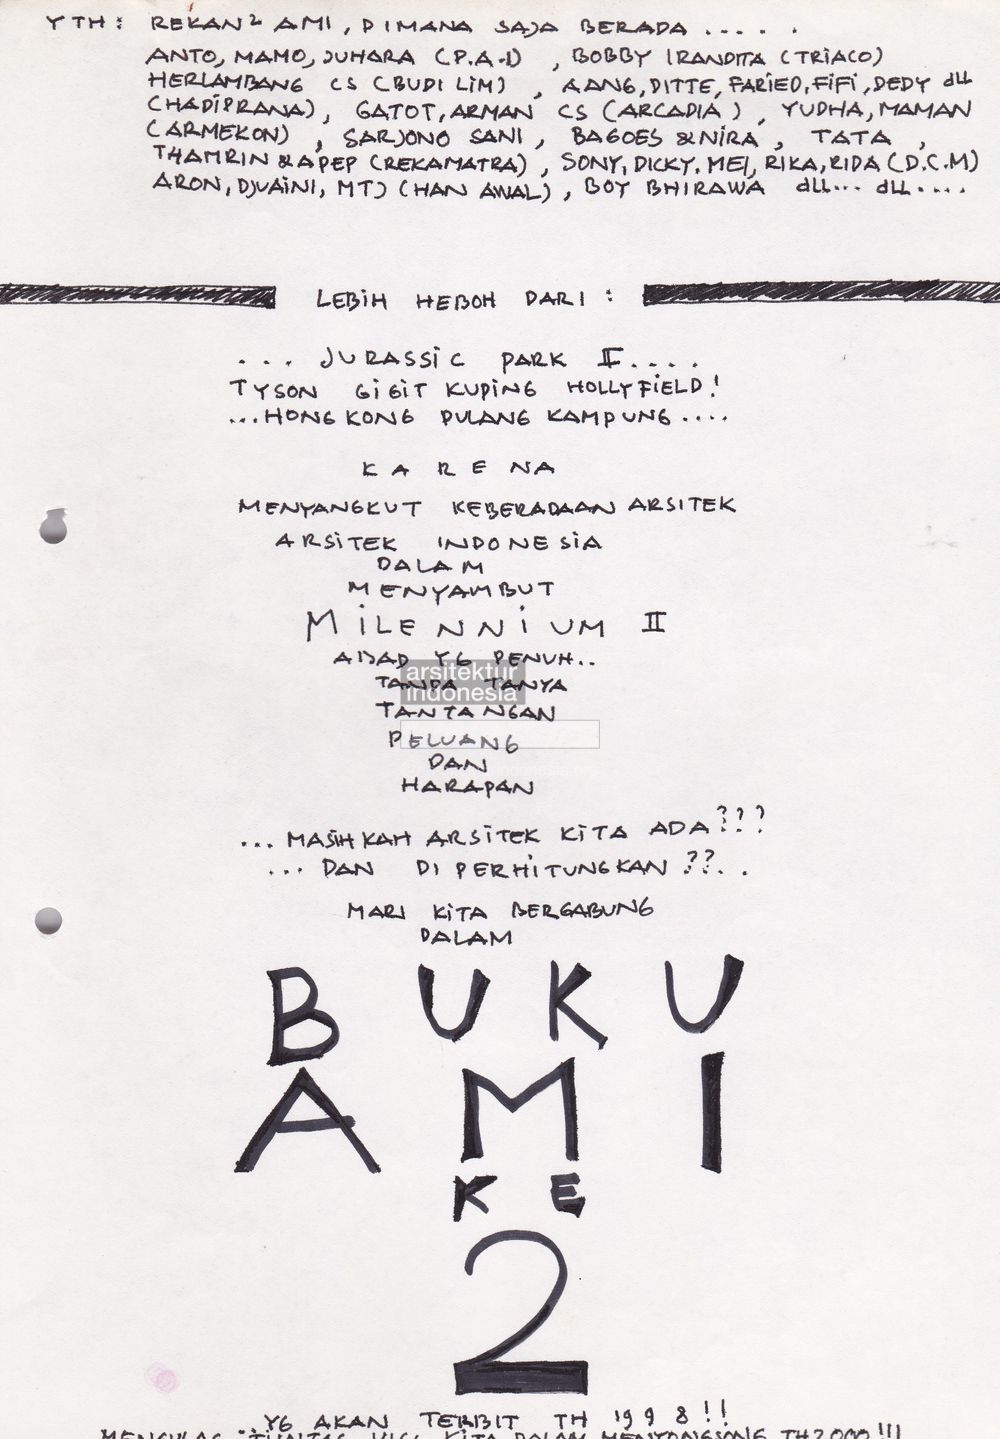 YTH: REKAN² AMI, DIMANA SAJA BERADA .....
ANTO, MAMO, JUHARA (P.A.I) , BOBBY IRANDITA (TRIACO)
HERLAMBANG CS (BUDI LIM) , AANG, DITTE, FARIED, FIFI, DEDY dll
(HADIPRANA), GATOT, ARMAN CS (ARCADIA) , YUDHA, MAMAN
(ARMEKON) , SARJONO SANI, BAGOES & NIRA, TATA ,
THAMRIN & APEP (REKAMATRA), SONY, DICKY. MEI, RIKA, RIDA (D.C.M)
ARON, DJUAINI, MTJ (HAN AWAL), BOY BHIRAWA dll... dll....
LEBIH HEBOH DARI :
... JURASSIC PARK II ....
TYSON GIGIT KUPING HOLLYFIELD!
...HONGKONG PULANG KAMPUNG....
KARENA
MENYANGKUT KEBERADAAN ARSITEK
ARSITEK INDONESIA
DALAM
MENYAMBUT
MILENNIUM II
ABAD YG PENUH..
TANDA TANYA
arsitektur
indonesia
TANTANGAN
PELUANG
DAN
HARAPAN
...MASIHKAH ARSITEK KITA ADA???
... DAN DIPERHITUNGKAN ??..
MARI KITA BERGABUNG
DALAM
BUKU
AMI
KE
2
YG AKAN TERBIT TH 1998!!
KITA DALAM MENYONGSONG TH 2000!!!